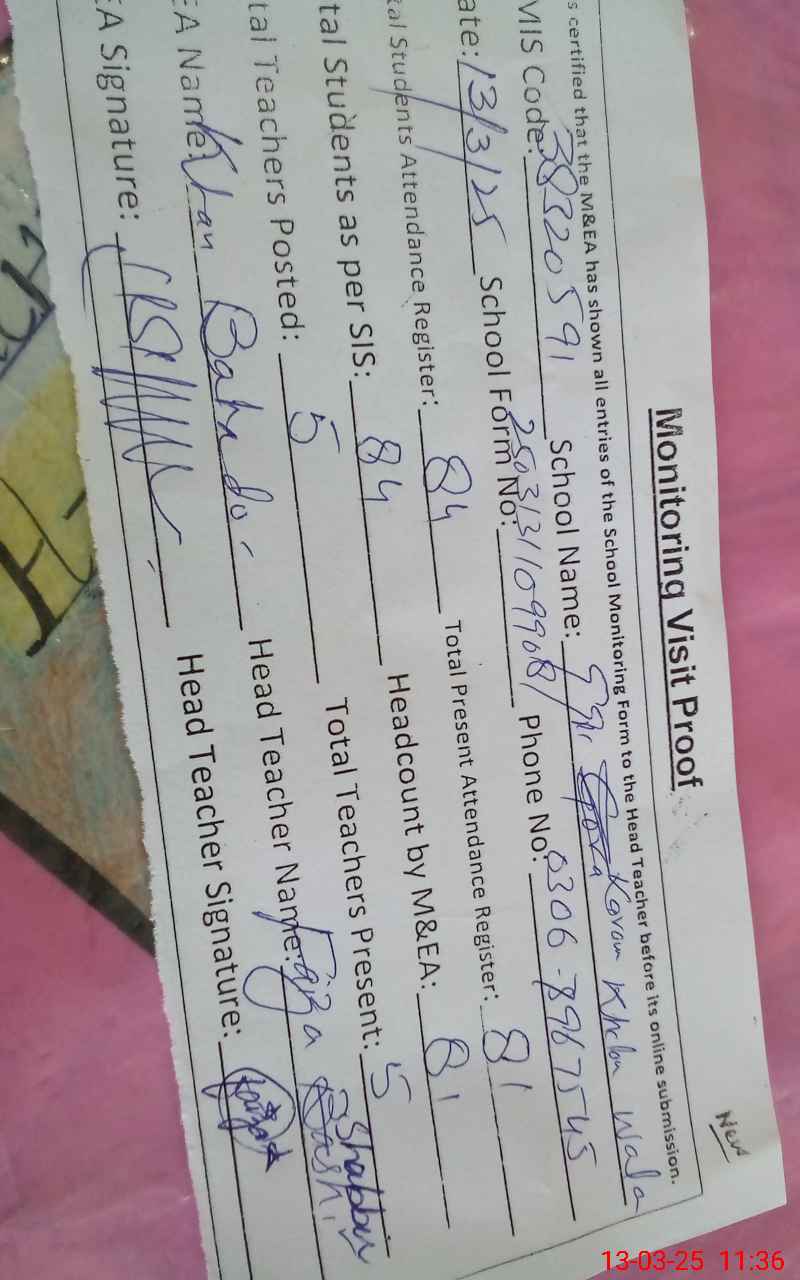 Monitoring Visit Proof
New
s certified that the M&EA has shown all entries of the School Monitoring Form to the Head Teacher before its online submission.
MIS Code: 38320591 School Name: Karam Khelu Wala
ate: 13/3/25 School Form No: Phone No: 0306-8967545
al Students Attendance Register: 84 Total Present Attendance Register: 81
tal Students as per SIS: 84 Headcount by M&EA: 81
tal Teachers Posted: 5 Total Teachers Present: 5
EA Name: Khan Bahadar Head Teacher Name: Faiza Shabbir
EA Signature: Head Teacher Signature:
13-03-25 11:36